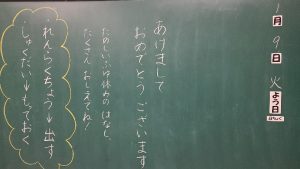 1月9日 火よう日
あけまして
おめでとう ございます
たのしい ふゆ休みの はなし、
たくさん おしえてね!
・れんらくちょう→出す
・しゅくだい→もっておく